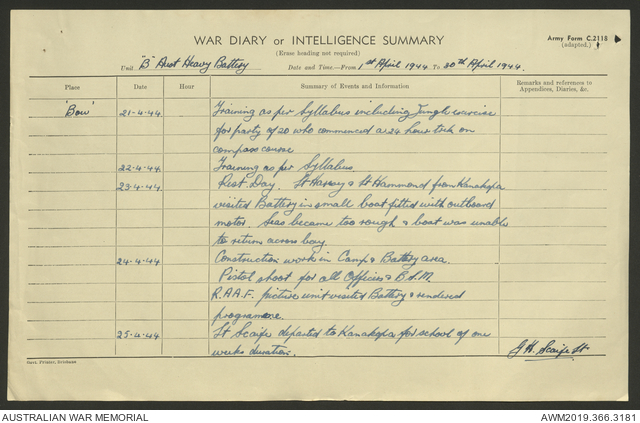 WAR DIARY or INTELLIGENCE SUMMARY
(Erase heading not required)
Army Form C.2118
(adapted.)
Unit "B" Aust Heavy Battery
Date and Time—From 1st April 1944 To 30th April 1944.
Place Date Hour Summary of Events and Information Remarks and references to
Appendices, Diaries, &c.
'Bow' 21-4-44 Training as per Syllabus including Jungle exercise
for party of 20 who commenced a 24 hour trek on
compass course
22-4-44 Training as per Syllabus.
23-4-44 Rest Day. Lt Harvey & Lt Hammond from Kanakopa
visited Battery in small boat fitted with outboard
motor. Seas became too rough & boat was unable
to return across bay.
24-4-44 Construction work in Camp & Battery area.
Pistol shoot for all Officers & B.S.M.
R.A.A.F. picture unit visited Battery & rendered
programme.
25-4-44 Lt Scaife departed to Kanakopa for school of one
weeks duration.
J H Scaife Lt
Govt. Printer, Brisbane
AUSTRALIAN WAR MEMORIAL
AWM2019.366.3181